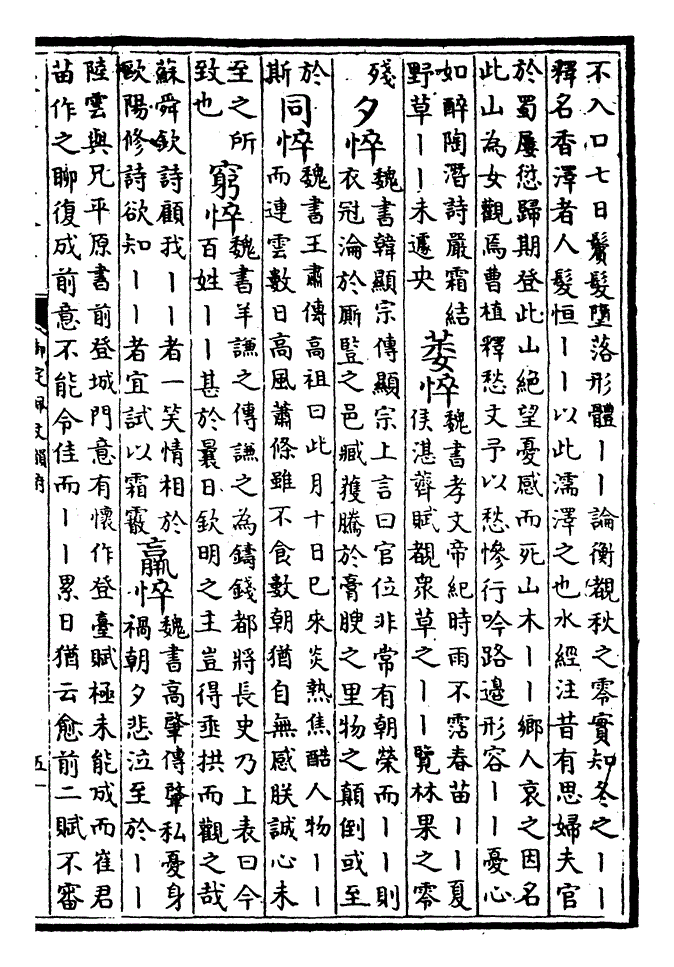 不入口七日鬢髮墮落形體丨丨論衡觀秋之零實知冬之丨丨
釋名香澤者人髮恒丨丨以此濡澤之也水經注昔有思婦夫官
於蜀屢愆歸期登此山絕望憂感而死山木丨丨鄉人哀之因名
此山為女觀焉曹植釋愁文予以愁慘行吟路邊形容丨丨憂心
如醉陶潛詩嚴霜結
野草丨丨未遽央
萎悴
魏書孝文帝紀時雨不霑春苗丨丨夏
侯湛薺賦覩衆草之丨丨覽林果之零
殘
夕悴
魏書韓顯宗傳顯宗上言曰官位非常有朝榮而丨丨則
衣冠淪於厮豎之邑臧獲騰於膏腴之里物之顛倒或至
於
斯
同悴
魏書王肅傳高祖曰此月十日已來炎熱焦酷人物丨丨
而連雲數日高風蕭條雖不食數朝猶自無感朕誠心未
至之所
致也
窮悴
魏書羊謙之傳謙之為鑄錢都將長史乃上表曰今
百姓丨丨甚於曩日欽明之主豈得垂拱而觀之哉
蘇舜欽詩顧我丨丨者一笑情相於
歐陽修詩欲知丨丨者宜試以霜霰
羸悴
魏書高肇傳肇私憂身
禍朝夕悲泣至於丨丨
陸雲與兄平原書前登城門意有懷作登臺賦極未能成而崔君
苗作之聊復成前意不能令佳而丨丨累日猶云愈前二賦不審
御定佩文韻府